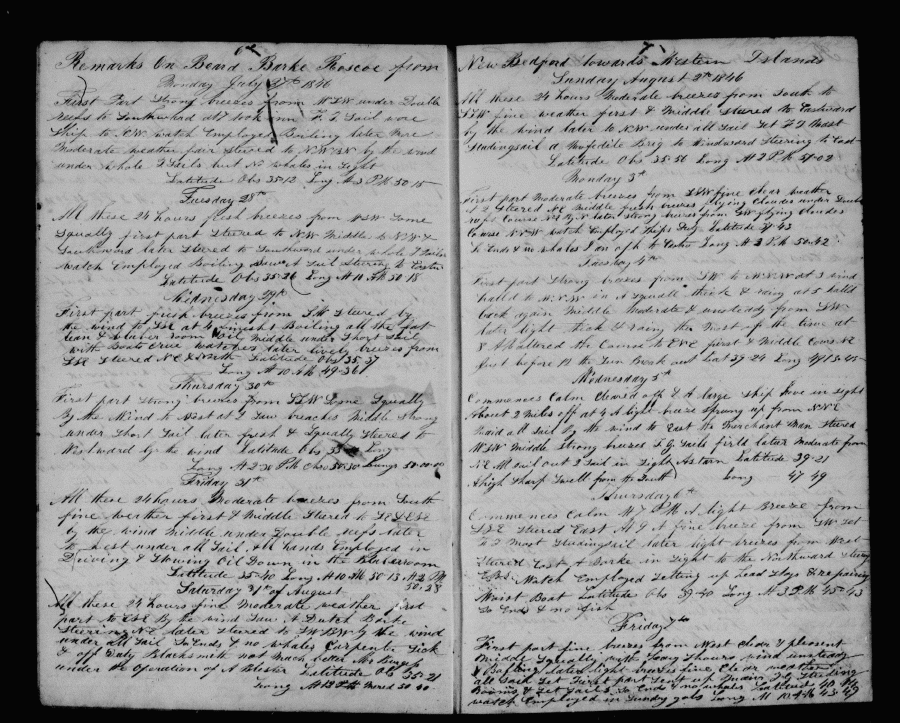 6th
Remarks On Board Barke Roscoe from
Monday July 27th 1846
First Part Strong breezes from WSW under Double
Reefs to Southward at took inn F J Sail wore
Ship to NW watch Employed Boiling later More
Moderate weather first Steered to NWBN by the wind
under whole T Sails but No whales in Sight
Latitude Obs 35-12 Long At 3 P.M 50-15
Tuesday 28th
All these 24 hours fresh breezes from WSW Some
Squally first part Steered to NW Middle to NW &
Southward later Steered to Southward under whole T Sails
watch Employed Boiling Saw A Sail Steering to Easter
Latitude Obs 35-26 Long At 10 AM 50 18
Wednesday 29th
First part fresh breezes from SW Steered by
the wind to SSE at 4 finisht Boiling all the fat
lean & blubber room Oil Middle under Short Sail
with Boat Crue watches later lively breezes from
SSE Steered NE & North Latitude Obs 35.37
Long At 10 AM 49-36
Thursday 30th
First part Strong breezes from SSW Some Squally
By the Wind to West at Saw breaches Middle Strong
under Short Sail later fresh & Squally Steers to
Westward by the wind Latitude Obs Long
Long At 2 30 P.M Obs 35-30 Long 50-00-00
Friday 31st
All these 24 hours Moderate breezes from South
fine weather first & Middle Steered to SE & ESE
by the wind Middle under Double reefs later
to West under all Sail All hands Employed in
Driving & Stowing Oil Down in the Blubberroom
Latitude 35-40 Long At 10 AM 50 13 At 2 PM
50.28
Saturday 31st of August
All these 24 hours fine Moderate weather first
part to ESE By the wind Saw A Dutch Barke
Steering NE later Steered to SWBW by the wind
under all Sail So Ends & no whales Carpenter Sick
& off Duty Blacksmith not Much better Mr
under the Operation of A Blister Latitude Obs 35-21
Long At 12 P.M Merd 50 40
7
New Bedford towards Western Islands
Sunday August 2th 1846
All these 24 hours Moderate breezes from South to
SSW fine weather first & Middle Steered to Eastward
by the wind later to NW under all Sail Set F T Mast
Studingsail a Mofodite Brig to Windward Steering to East
Latitude Obs 35-56 Long At 2 P.M 51-02
Monday 3th
First part Moderate breezes from SSW fine Clear weather
Steered NE Middle fresh breezes flying Cloudes under Double
reefs Course NEByN later Strong breezes from SW flying Cloudes
Course NNW watch Employed Ships Duty Latitude 37 43
So Ends & no whales Long At 3 P.M 50.42
Tuesday 4th
First part Strong breezes from SW to WNW at 3 wind
halled to WNW in A Squall thick & rainy at 5 halled
back again Middle Moderate & unsteady from SW
later light thick & rainy the Most of the time at
8 AM altered the Course to ENE first & Middle Course NE
just before 12 the Sun Broak out Lat 39-24 Long
Wednesday 5th
Commences Calm Cleared off & A large Ship hove in Sight
About 2 Miles off at 4 A light breeze Sprung up from NNE
Maid all Sail by the wind to East the Merchant Man Steered
WSW Middle Strong breezes T G Sails firld later Moderate from
NE All Sail out 1 Sail in Sight Astarn Latitude 39-21
Ahigh Sharp Swell from the South Long 47 49
Thursday 6th
Commences Calm At 7 P.M A light Breeze from
SSE Steered East At 9 A fine breeze from SW Set
F T Mast Studingsail later light breezes from West
Steered East A Barke in Sight to the Northward Steering
ESE Watch Employed Setting up Head Stays & repairing
Waist Boat Latitude Obs 39-40 Long At 3 P.M 45-43
So Ends & no fish
Friday 7th
First part fine breezes from West Clear & pleasent
Middle Squally with foggy Showers and unsteady
& Baffling later light breezes fine Clear weather
all Sail Set First part Sent up Main T G Studing
Booms & Set Sails So Ends & no whales Latitude 40
watch Employed in Sundry jobs Long At 10 AM 43 49